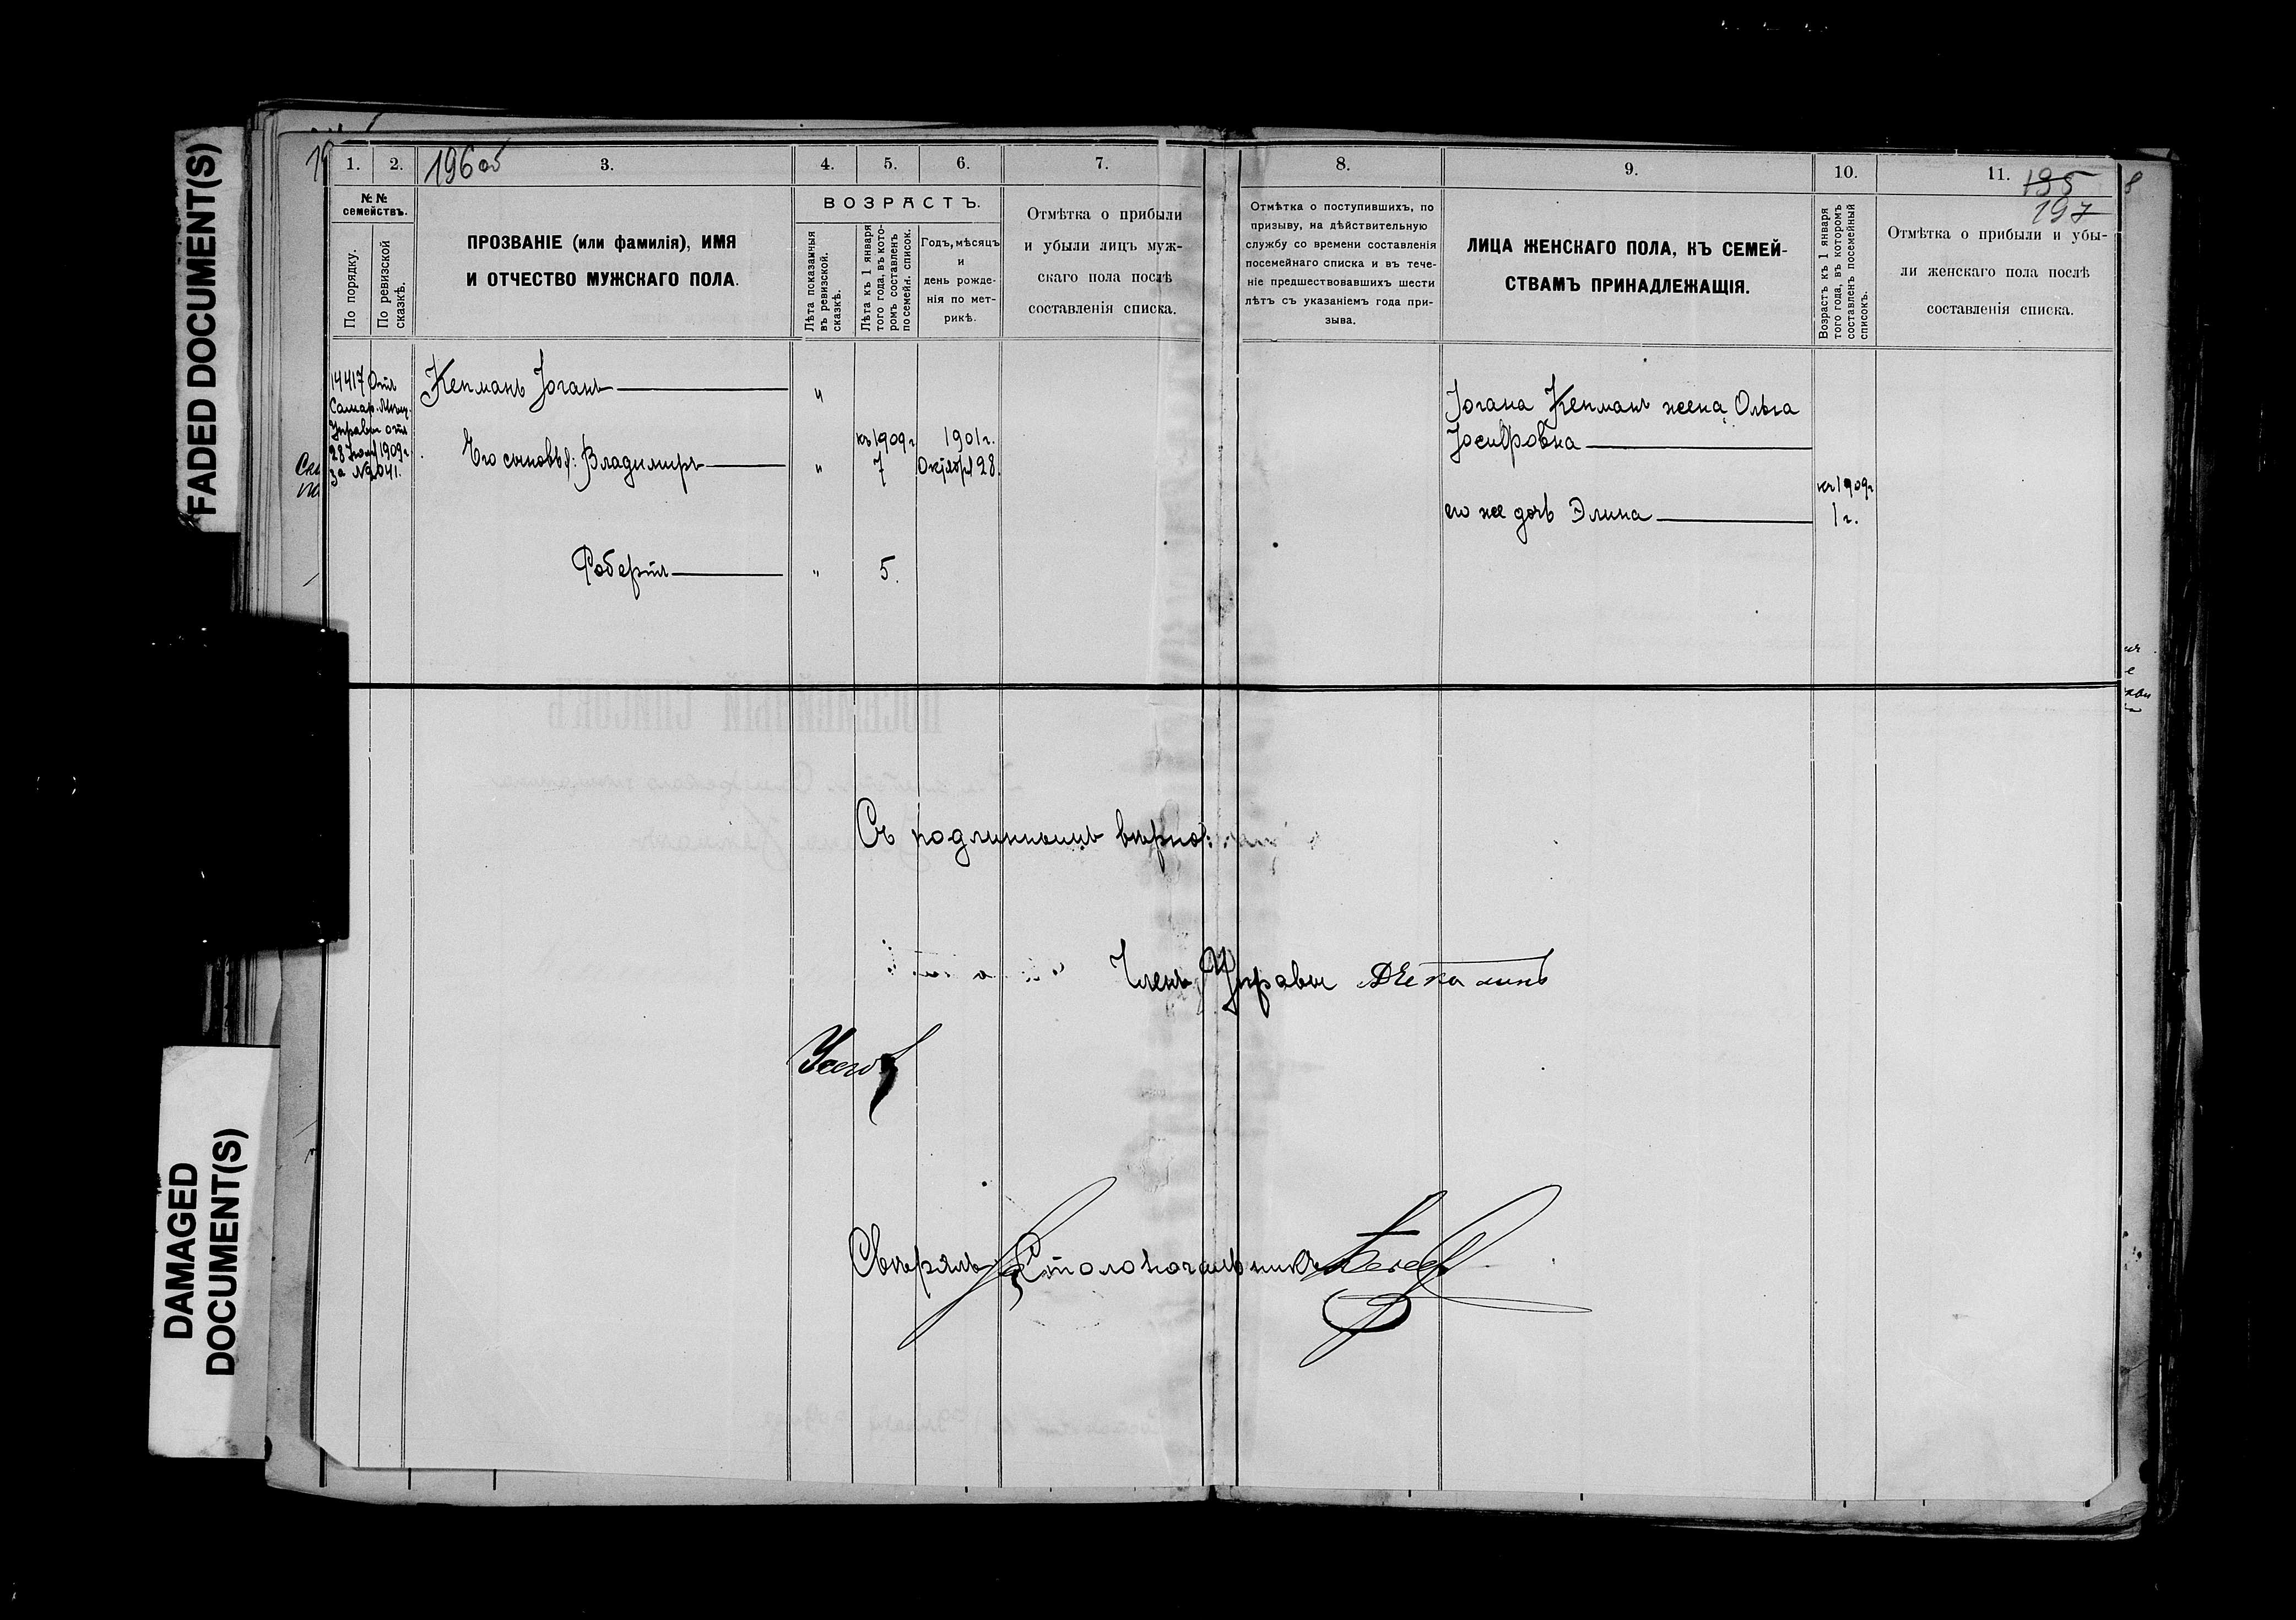 FADED DOCUMENT(S)
DAMAGED
DOCUMENT(S)
1.
2.
196 об
3.
4.
5.
6.
7.
8.
9.
10.
11.
195
197
№ №
семействъ.
По порядку.
По ревизской
сказкѣ.
ПРОЗВАНІЕ (или фамилія), ИМЯ
И ОТЧЕСТВО МУЖСКАГО ПОЛА.
ВОЗРАСТЪ.
Лѣта показанныя
въ ревизской.
сказкѣ.
Лѣта къ 1 января
того года, въ кото-
ромъ составленъ
посемейл. список.
Годъ, мѣсяцъ
и
день рожде-
нія по мет-
рикѣ.
Отмѣтка о прибыли
и убыли лицъ муж-
скаго пола послѣ
составленія списка.
Отмѣтка о поступившихъ, по
призыву, на дѣйствительную
службу со времени составленія
посемейнаго списка и въ тече-
ніе предшествовавшихъ шести
лѣтъ съ указаніемъ года при-
зыва.
ЛИЦА ЖЕНСКАГО ПОЛА, КЪ СЕМЕЙ-
СТВАМЪ ПРИНАДЛЕЖАЩІЯ.
Возрастъ къ 1 января
того года, въ которомъ
составленъ посемейный
списокъ.
Отмѣтка о прибыли и убы-
ли женскаго пола послѣ
составленія списка.
14417 Отн
Самар. Мѣщ.
Управы отъ
28 1909 г.
за № 2041.
Кепманъ Іоганъ
"
Его сыновья: Владимиръ
"
къ 1909 г
7
1901 г.
Октября 28.
Робертъ
"
5.
Іогана Кепманъ жена Ольга
Іосифовна
его же дочь Элина
къ 1909 г
1 г.
Съ подлиннымъ вѣрно:
Членъ Управы
Свѣрялъ Столоначальникъ